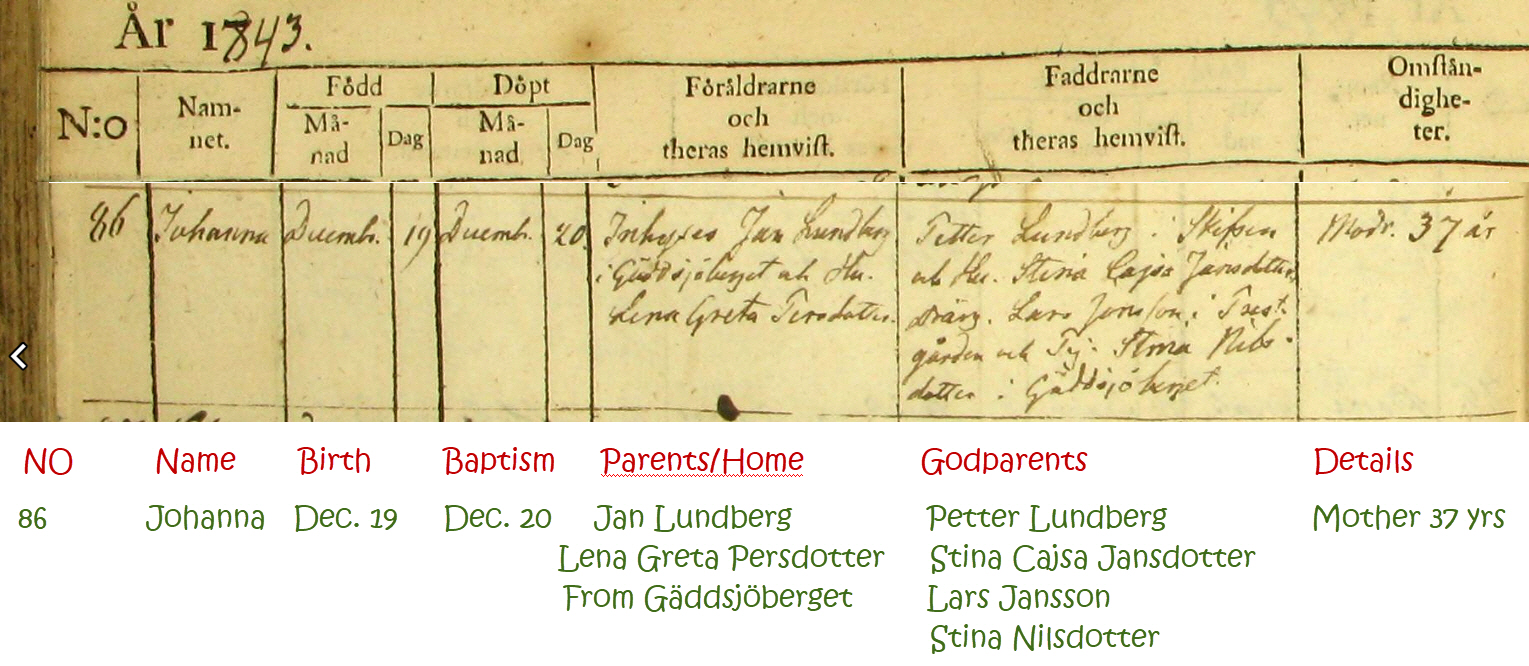 År 1843.
N:o
Nam-
net.
Född
Må-
nad
Dag
Döpt
Må-
nad
Dag
Föräldrarne
och
theras hemvist.
Faddrarne
och
theras hemvist.
Omstån-
dighe-
ter.
86
Johanna
Decembr.
19
Decembr.
20
Inhyses Jan Lundberg
i Gäddsjöberget och Hu.
Lena Greta Persdotter.
Petter Lundberg i
och Hu. Stina Cajsa Jansdotter,
Dräng. Lars Jonsson i Prest-
gården och Pig. Stina Nils-
dotter i Gäddsjöberget.
Modr. 37 år
NO
Name
Birth
Baptism
Parents/Home
Godparents
Details
86
Johanna
Dec. 19
Dec. 20
Jan Lundberg
Lena Greta Persdotter
From Gäddsjöberget
Petter Lundberg
Stina Cajsa Jansdotter
Lars Jansson
Stina Nilsdotter
Mother 37 yrs